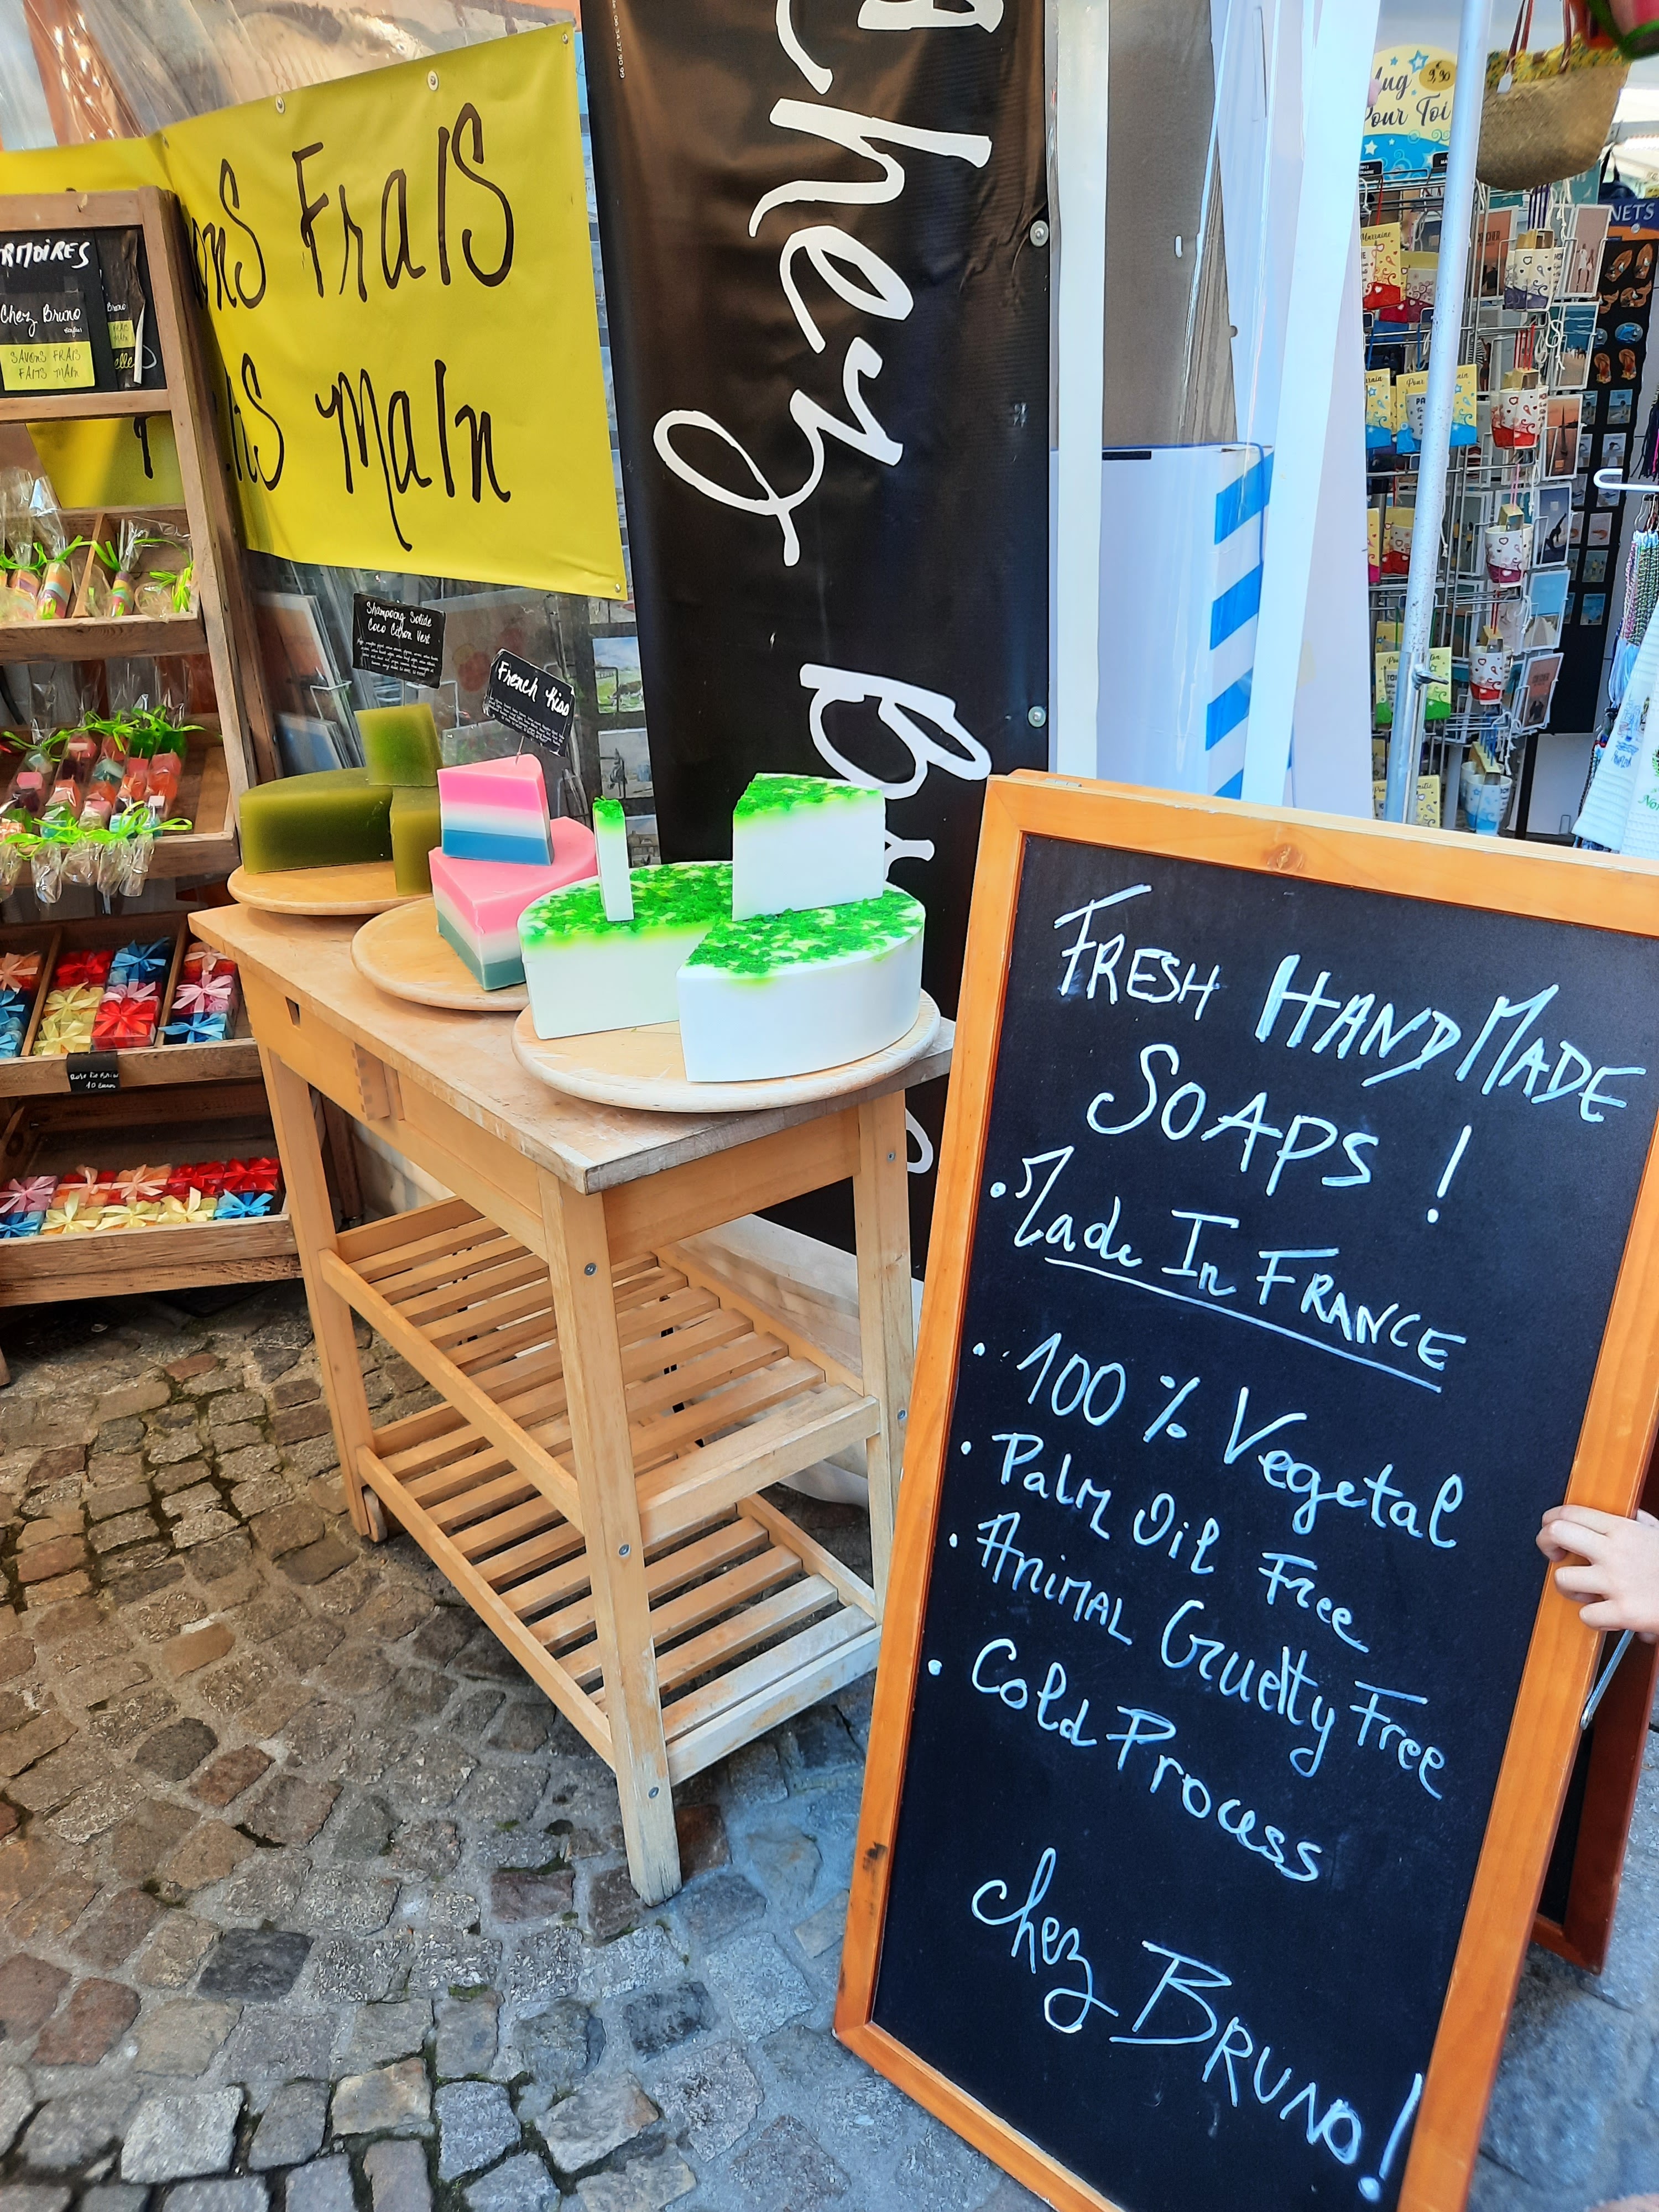 Frais
Main
Chez
Chez Bruno
SAVONS FRAIS
FAITS MAIN
Bruno
Shampoing Solide
Coco Citron Vert
French Kiss
Mug
9.90
Pour Toi
NETS
FRESH HANDMADE
SOAPS !
• Made In FRANCE
• 100 % Vegetal
• Palm Oil Free
• Animal Cruelty Free
• Cold Process
chez BRUNO!